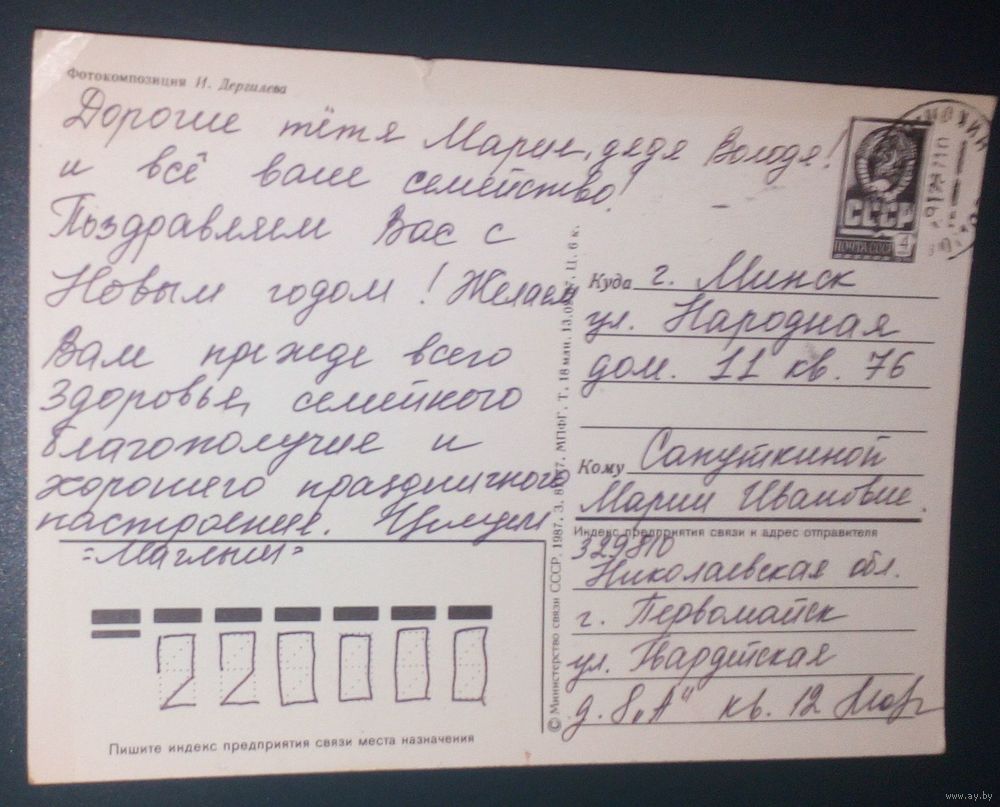 Фотокомпозиция И. Дергилева
Дорогие тётя Мария, дядя Володя!
и всё ваше семейство!
Поздравляем Вас с
Новым годом! Желаем
Вам прежде всего
здоровья, семейного
благополучия и
хорошего праздничного
настроения. Целуем
СССР
ПОЧТА СССР
4
Куда г. Минск
ул. Народная
дом. 11 кв. 76
Кому Сапуткиной
Марии Ивановне.
Индекс предприятия связи и адрес отправителя
329810
Николаевская обл.
г. Первомайск
ул. Гвардейская
д. 8 „А“ кв. 12
© Министерство связи СССР, 1987. З. МПФГ. Т. 18 млн. Ц. 6 к.
220000
Пишите индекс предприятия связи места назначения
www.ay.by